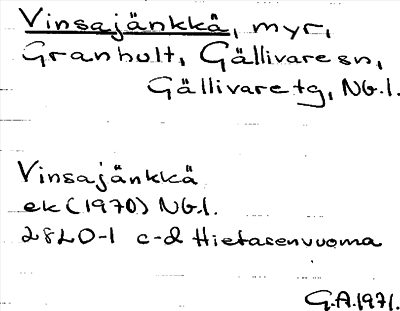 Vinsajänkkä, myr,
Granhult, Gällivare sn,
Gällivare tg, Nb.l.
Vinsajänkkä
ek (1970) Nb.l.
28L0-1 c-d Hietasenvuoma
G.A. 1971.